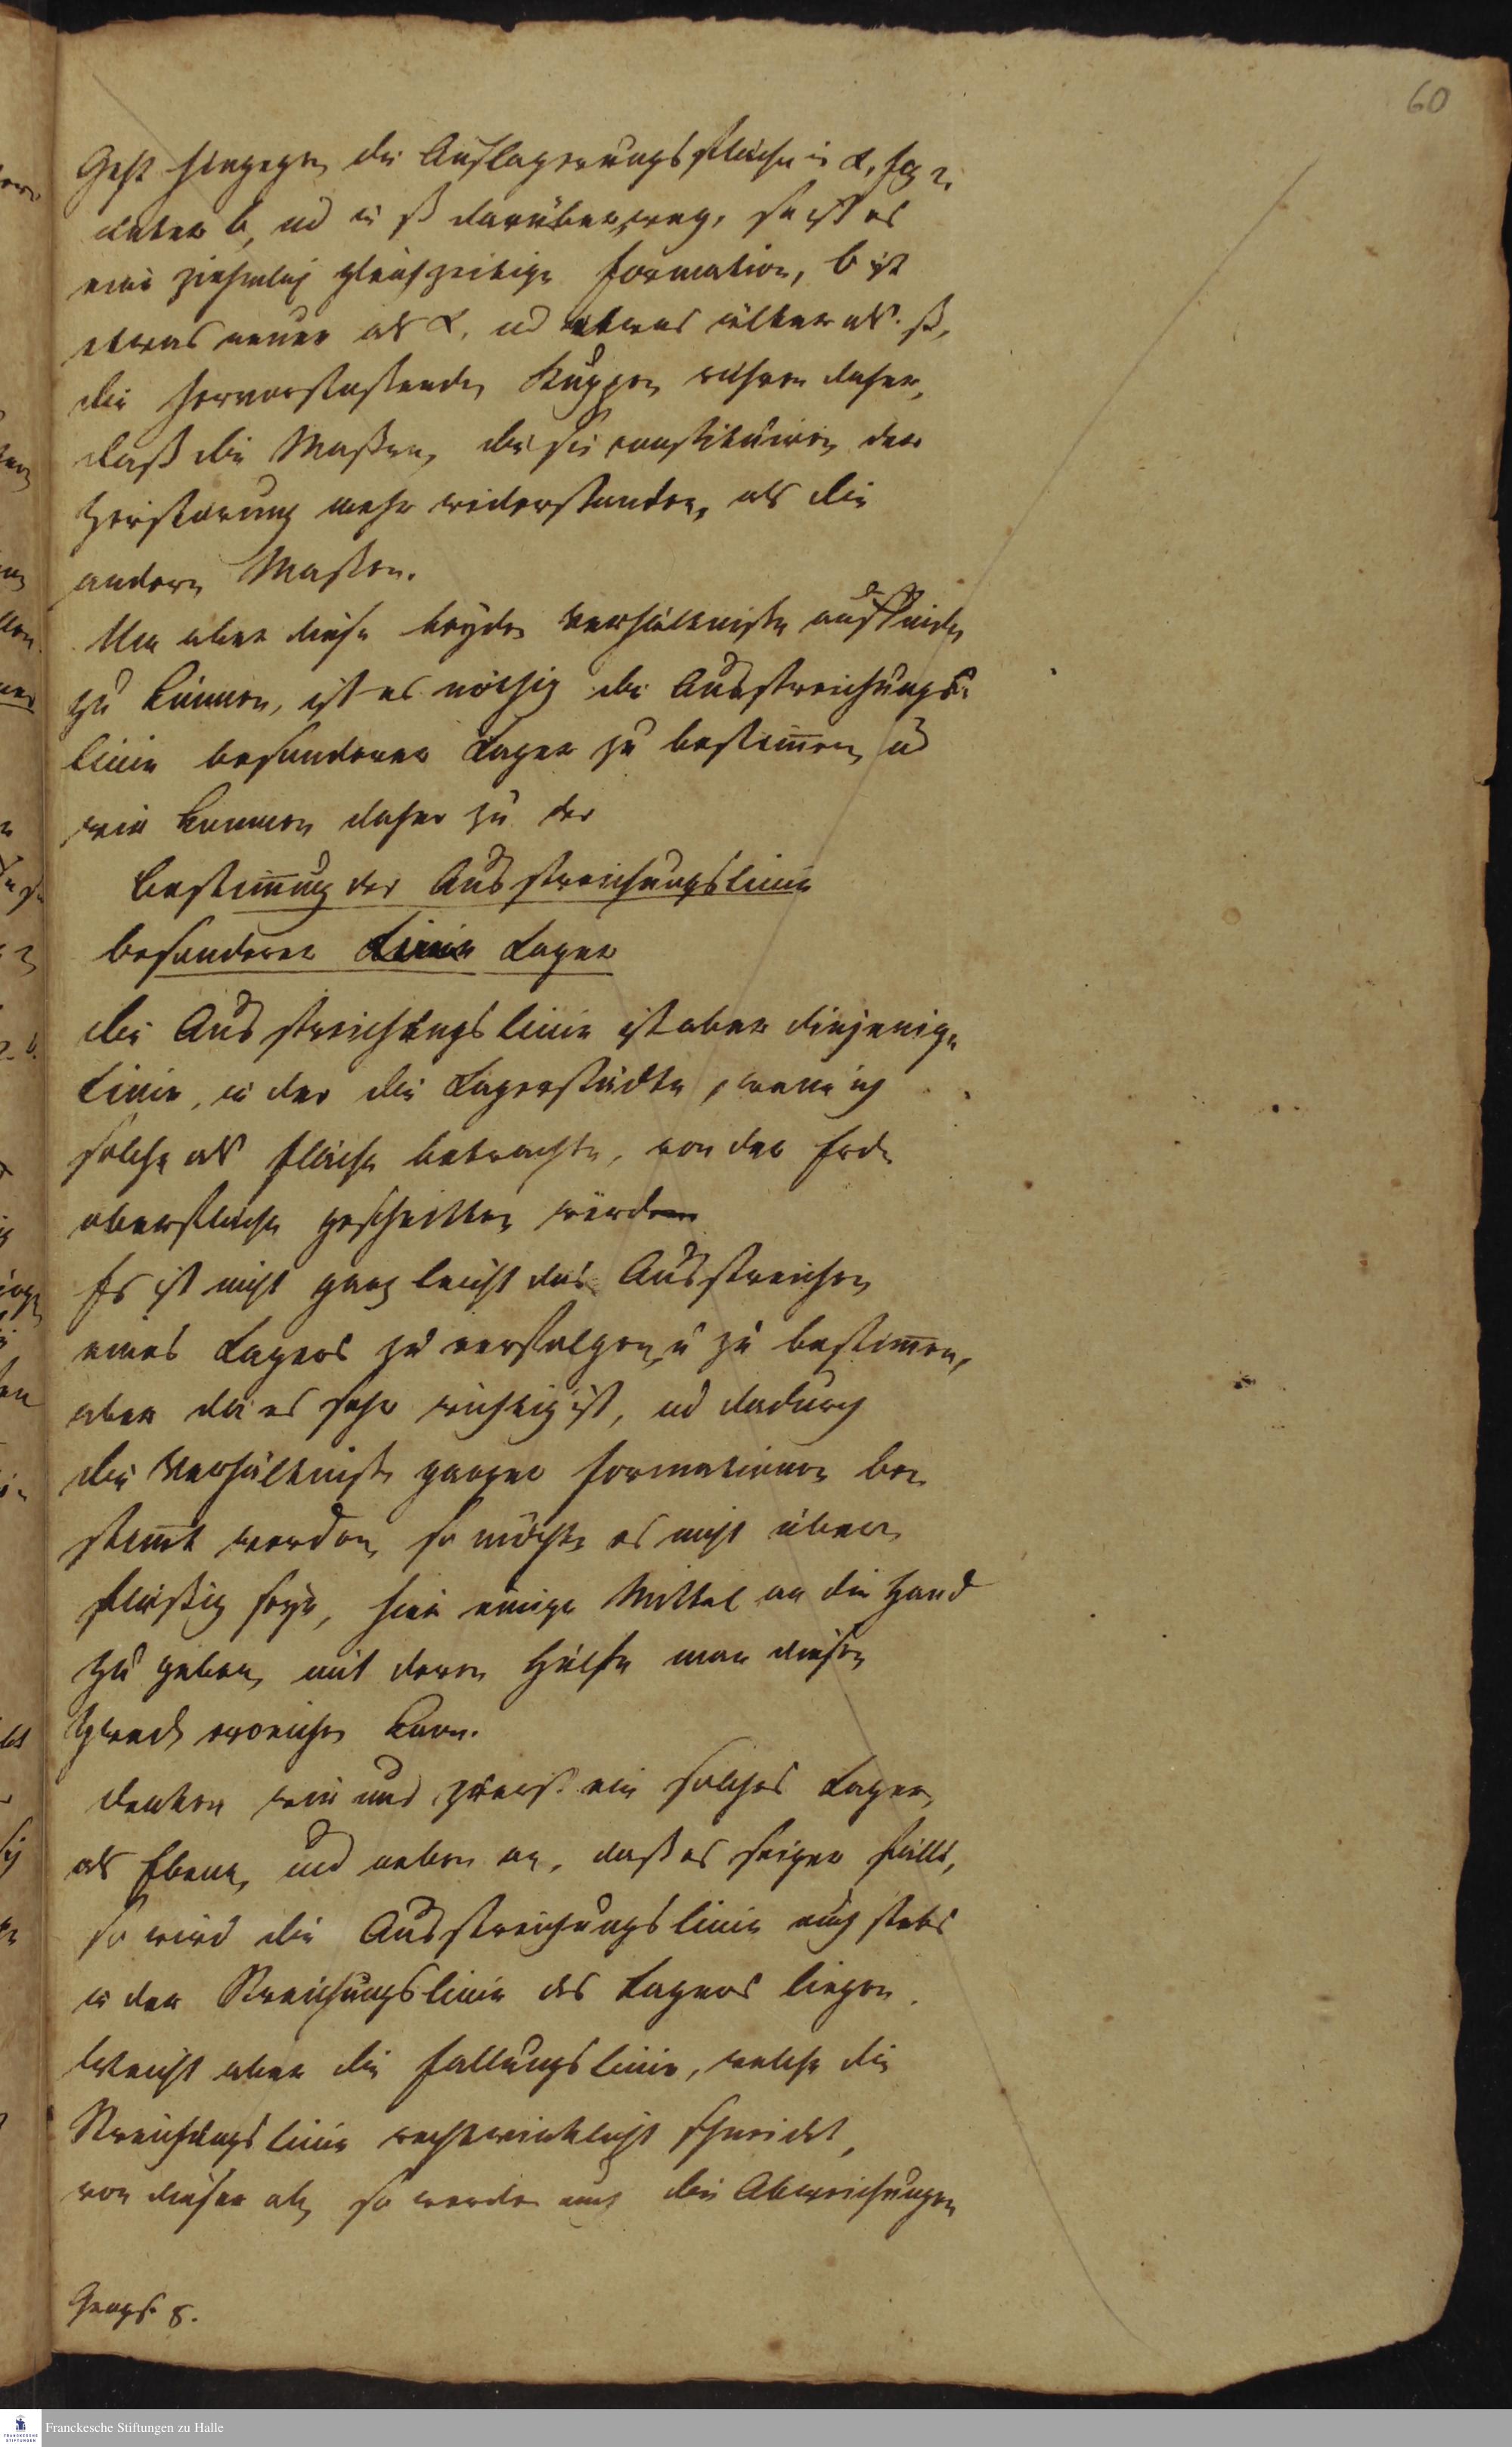 60
Geht hingegen die Auflagerungsfläche in α, Fig 2.
unter b, und in ß darüber weg, so ist es
eine ziehmlich gleichzeitige Formation, b ist
etwas neuer als α, und etwas älter als ß,
die hervorstoßenden Kuppen rühren daher,
daß die Maßen, die sie constituiren der
Zerstörung mehr widerstanden, als die
andern Maßen.
Um aber diese beyden Verhältniße auffinden
zu können, ist es nöthig die Ausstreichungs-
linie besonderer Lager zu bestim̅en, u
wir kommen daher zu der
Bestim̅ung der Ausstreichungslinie
besonderer Linie Lager
die Ausstreichungslinie ist aber diejenige
Linie, in der die Lagerstädte, wenn ich
solche als Fläche betrachte, von der Erd-
oberfläche geschnitten würden
Es ist nicht ganz leicht das Ausstreichen
eines Lagers zu verfolgen, u zu bestim̅en,
aber da es sehr wichtig ist, und dadurch
die Verhältniße ganzer Formationen be-
stim̅t werden, so möchte es nicht über-
flüßig seyn, hier einige Mittel an die Hand
zu geben, mit deren Hülfe man diesen
Zweck erreichen kann.
denken wir uns zuerst ein solches Lager,
als Ebene, und nehmen an, daß es seiger fällt,
so wird die Ausstreichungslinie auch stets
in der Streichungslinie des Lagers liegen.
Weicht aber die Fallungslinie, welche die
Streichungslinie rechtwinklicht schneidet,
von dieser ab, so werden auch die Abweichungen
Geogn. 8.
Franckesche Stiftungen zu Halle
FRANCKESCHE
STIFTUNGEN